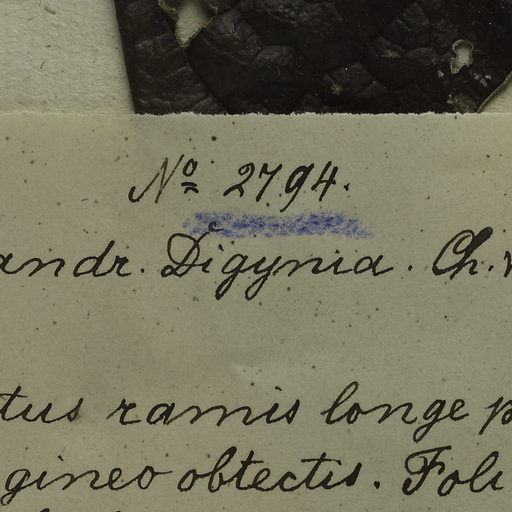 Nº 2794.
andr. Digynia. Ch.
tus ramis longe p
gineo obtectis. Foli